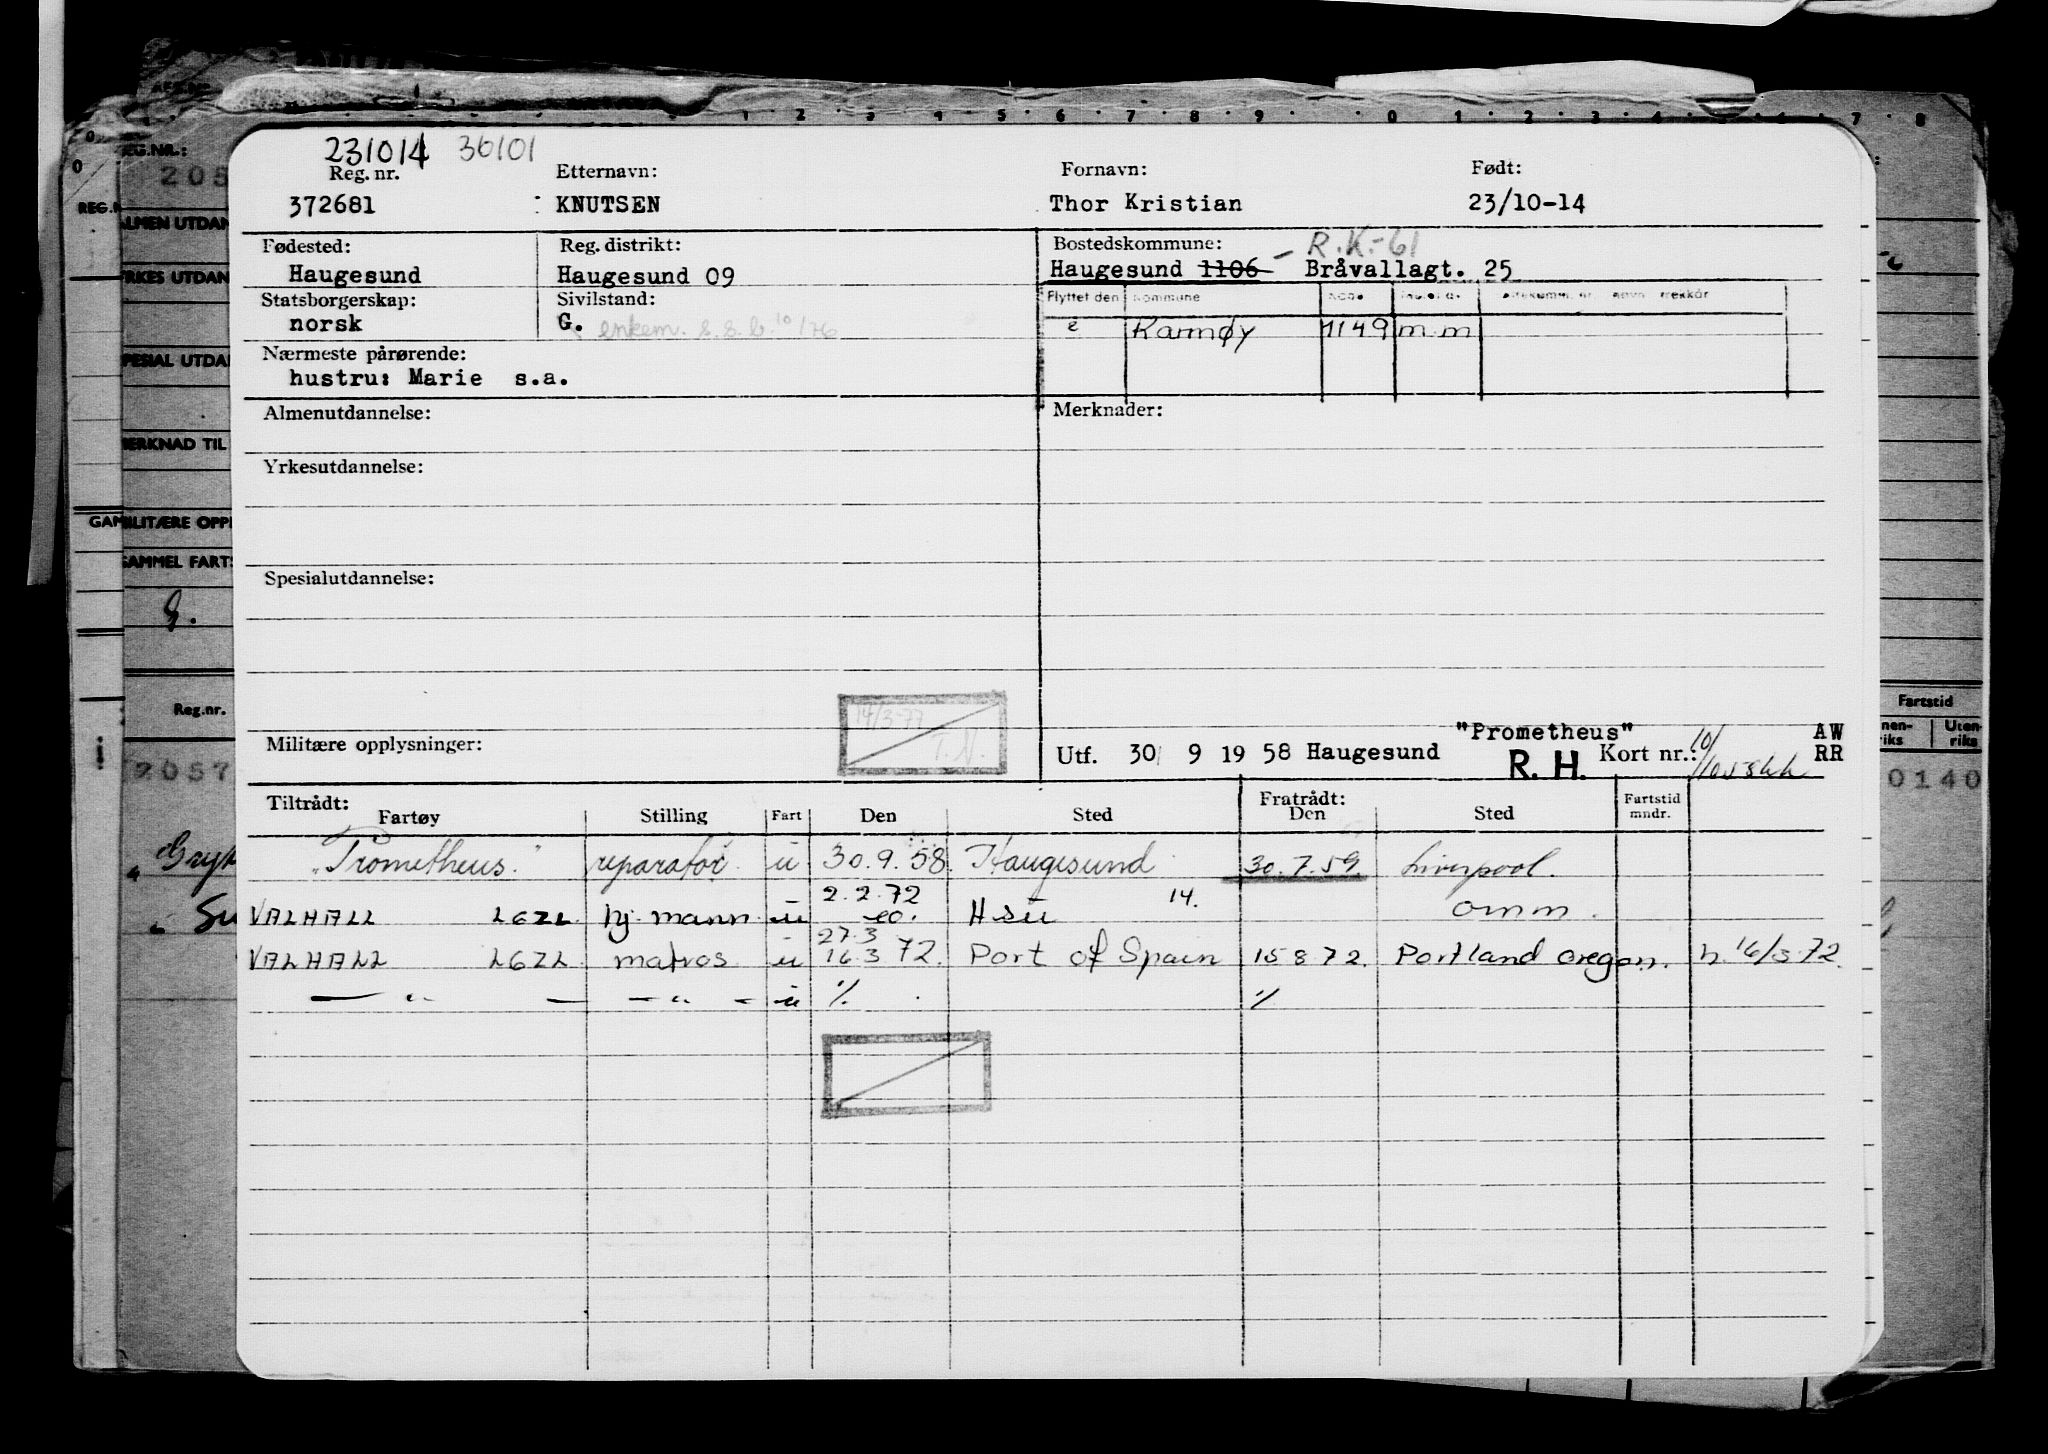 231014 36101
Reg. nr. Etternavn: Fornavn: Født:
372681 KNUTSEN Thor Kristian 23/10-14
Fødested: Reg. distrikt: Bostedskommune: - R.K.-61
Haugesund Haugesund 09 Haugesund 1106 Bråvallagt. 25
Statsborgerskap: Sivilstand: Flyttet den Kommune
norsk G. enkem. s.s.b. 10/76 Karmøy 1149 m m
Nærmeste pårørende:
hustru: Marie s.a.
Almenutdannelse: Merknader:
Yrkesutdannelse:
Spesialutdannelse:
14/3-77
T.N.
Militære opplysninger:
"Prometheus" AW
Utf. 30 9 19 58 Haugesund R. H. Kort nr.: RR
Tiltrådt: Fratrådt: Fartstid
Fartøy Stilling Fart Den Sted Den Sted mndr.
"Prometheus." reparatør u 30.9.58 Haugesund 30.7.59 Liverpool.
2.2.72 14.
VALHALL LGZL hj. mann u Hsu omm.
27.3
VALHALL LGZL matros u 16.3 72. Port of Spain 15 8 72. Portland oregon. h. 16/3.72.
— " — — " — u % %
REG.NR.:
205
REG.N
ALMEN UTDAN
YRKES UTDAN
SPESIAL UTDA
MERKNAD TIL
MILITÆRE OPP
GAMMEL FARTS
G.
Reg.nr.
2057
Fartstid
nen-riks Uten-riks
0140